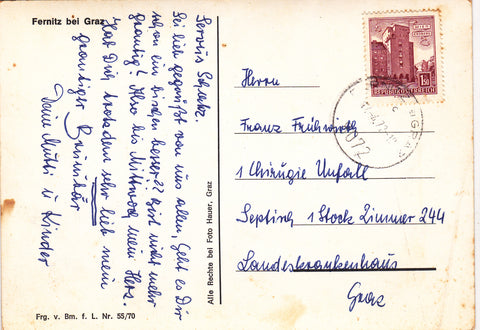 Fernitz bei Graz
Servus Schatz.
Sei lieb gegrüßt von uns allen. Geht es Dir
schon ein bischen besser?? Bist nicht mehr
grantig! Also bis Mittwoch mein Herz.
Hab Dich trotzdem sehr lieb mein
grantiger
Deine Mutti u Kinder
Alle Rechte bei Foto Hauer, Graz
Frg. v. Bm. f. L. Nr. 55/70
REPUBLIK ÖSTERREICH
1.50
8072
Herrn
Franz Frühwirth
1 Chirugie Unfall
Septing 1 Stock Zimmer 244
Landeskrankenhaus
Graz